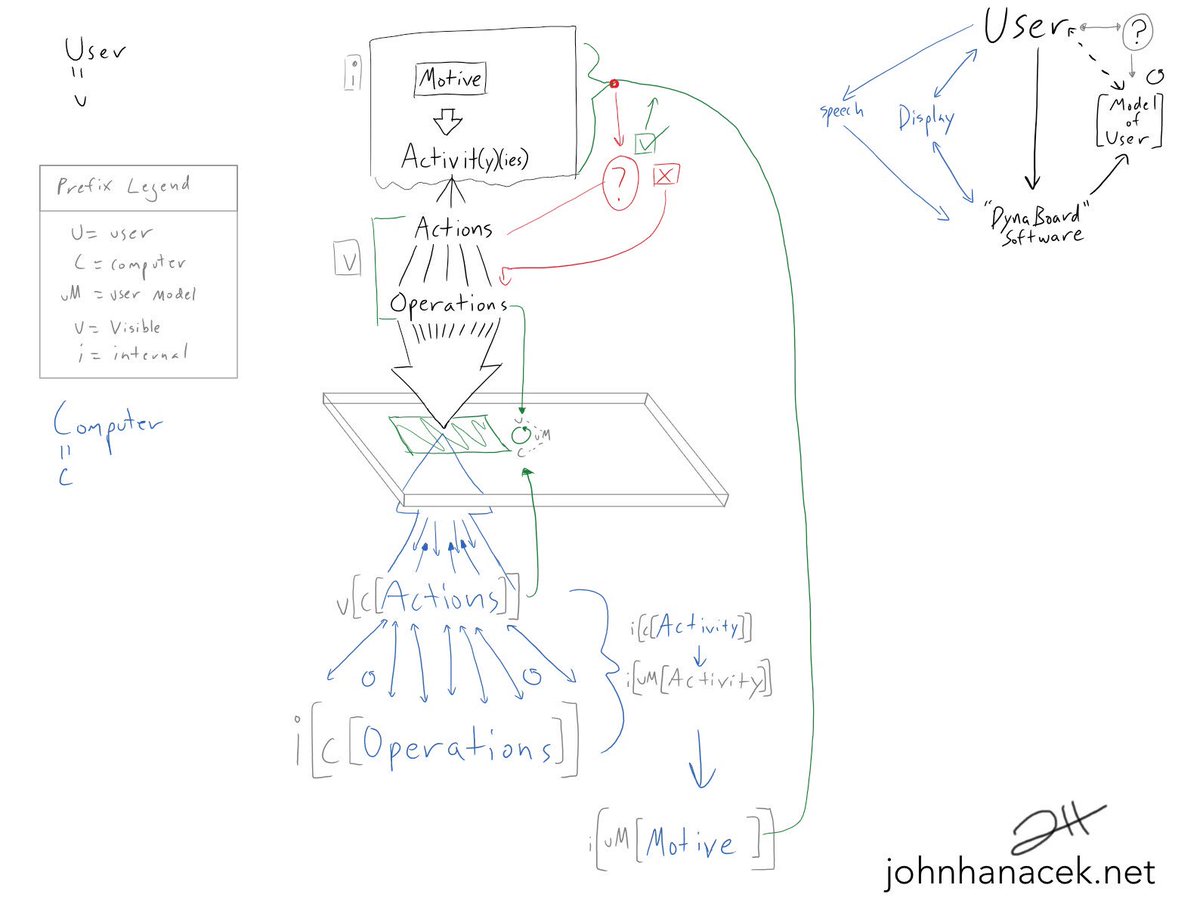 User
"
U
Prefix Legend
U = user
C = computer
uM = user Model
V = Visible
i = internal
Computer
"
C
i
Motive
Activit(y)(ies)
V
Actions
Operations
?
U
uM
C
v[c[Actions]]
i[c[Operations]]
i[c[Activity]]
i[uM[Activity]]
i[uM[Motive]]
User
?
speech
Display
[Model
of
User]
"DynaBoard"
Software
johnhanacek.net